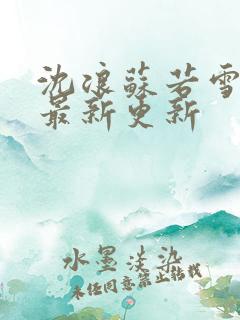 沈浪蘇若雪
最新更新
水墨淡染
未经同意禁止转载